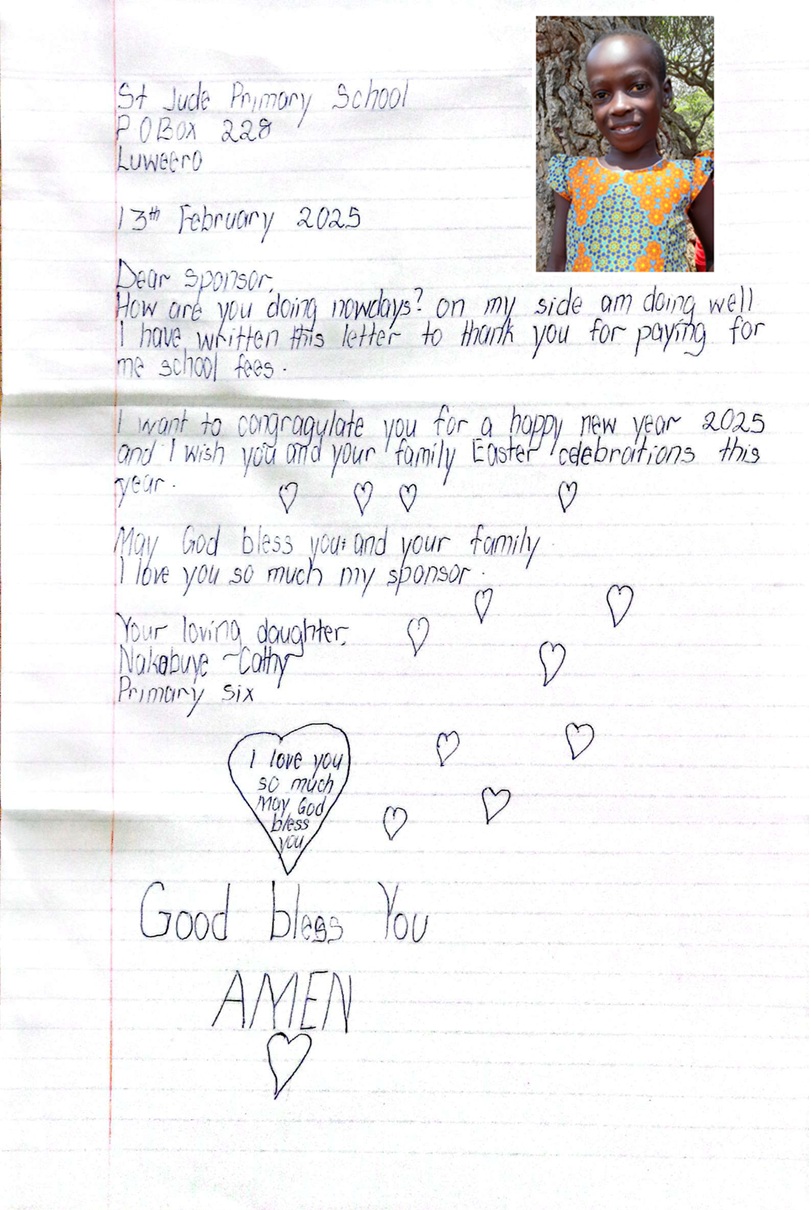 St Jude Primary School
P O Box 228
Luweero
13th February 2025
Dear sponsor,
How are you doing nowdays? on my side am doing well
I have written this letter to thank you for paying for
me school fees.
I want to congragulate you for a happy new year 2025
and I wish you and your family Easter celebrations this
year.
May God bless you and your family
I love you so much my sponsor.
Your loving daughter,
Nakabuye Cathy
Primary six
I love you
so much
May God
bless
you
Good bless You
AMEN